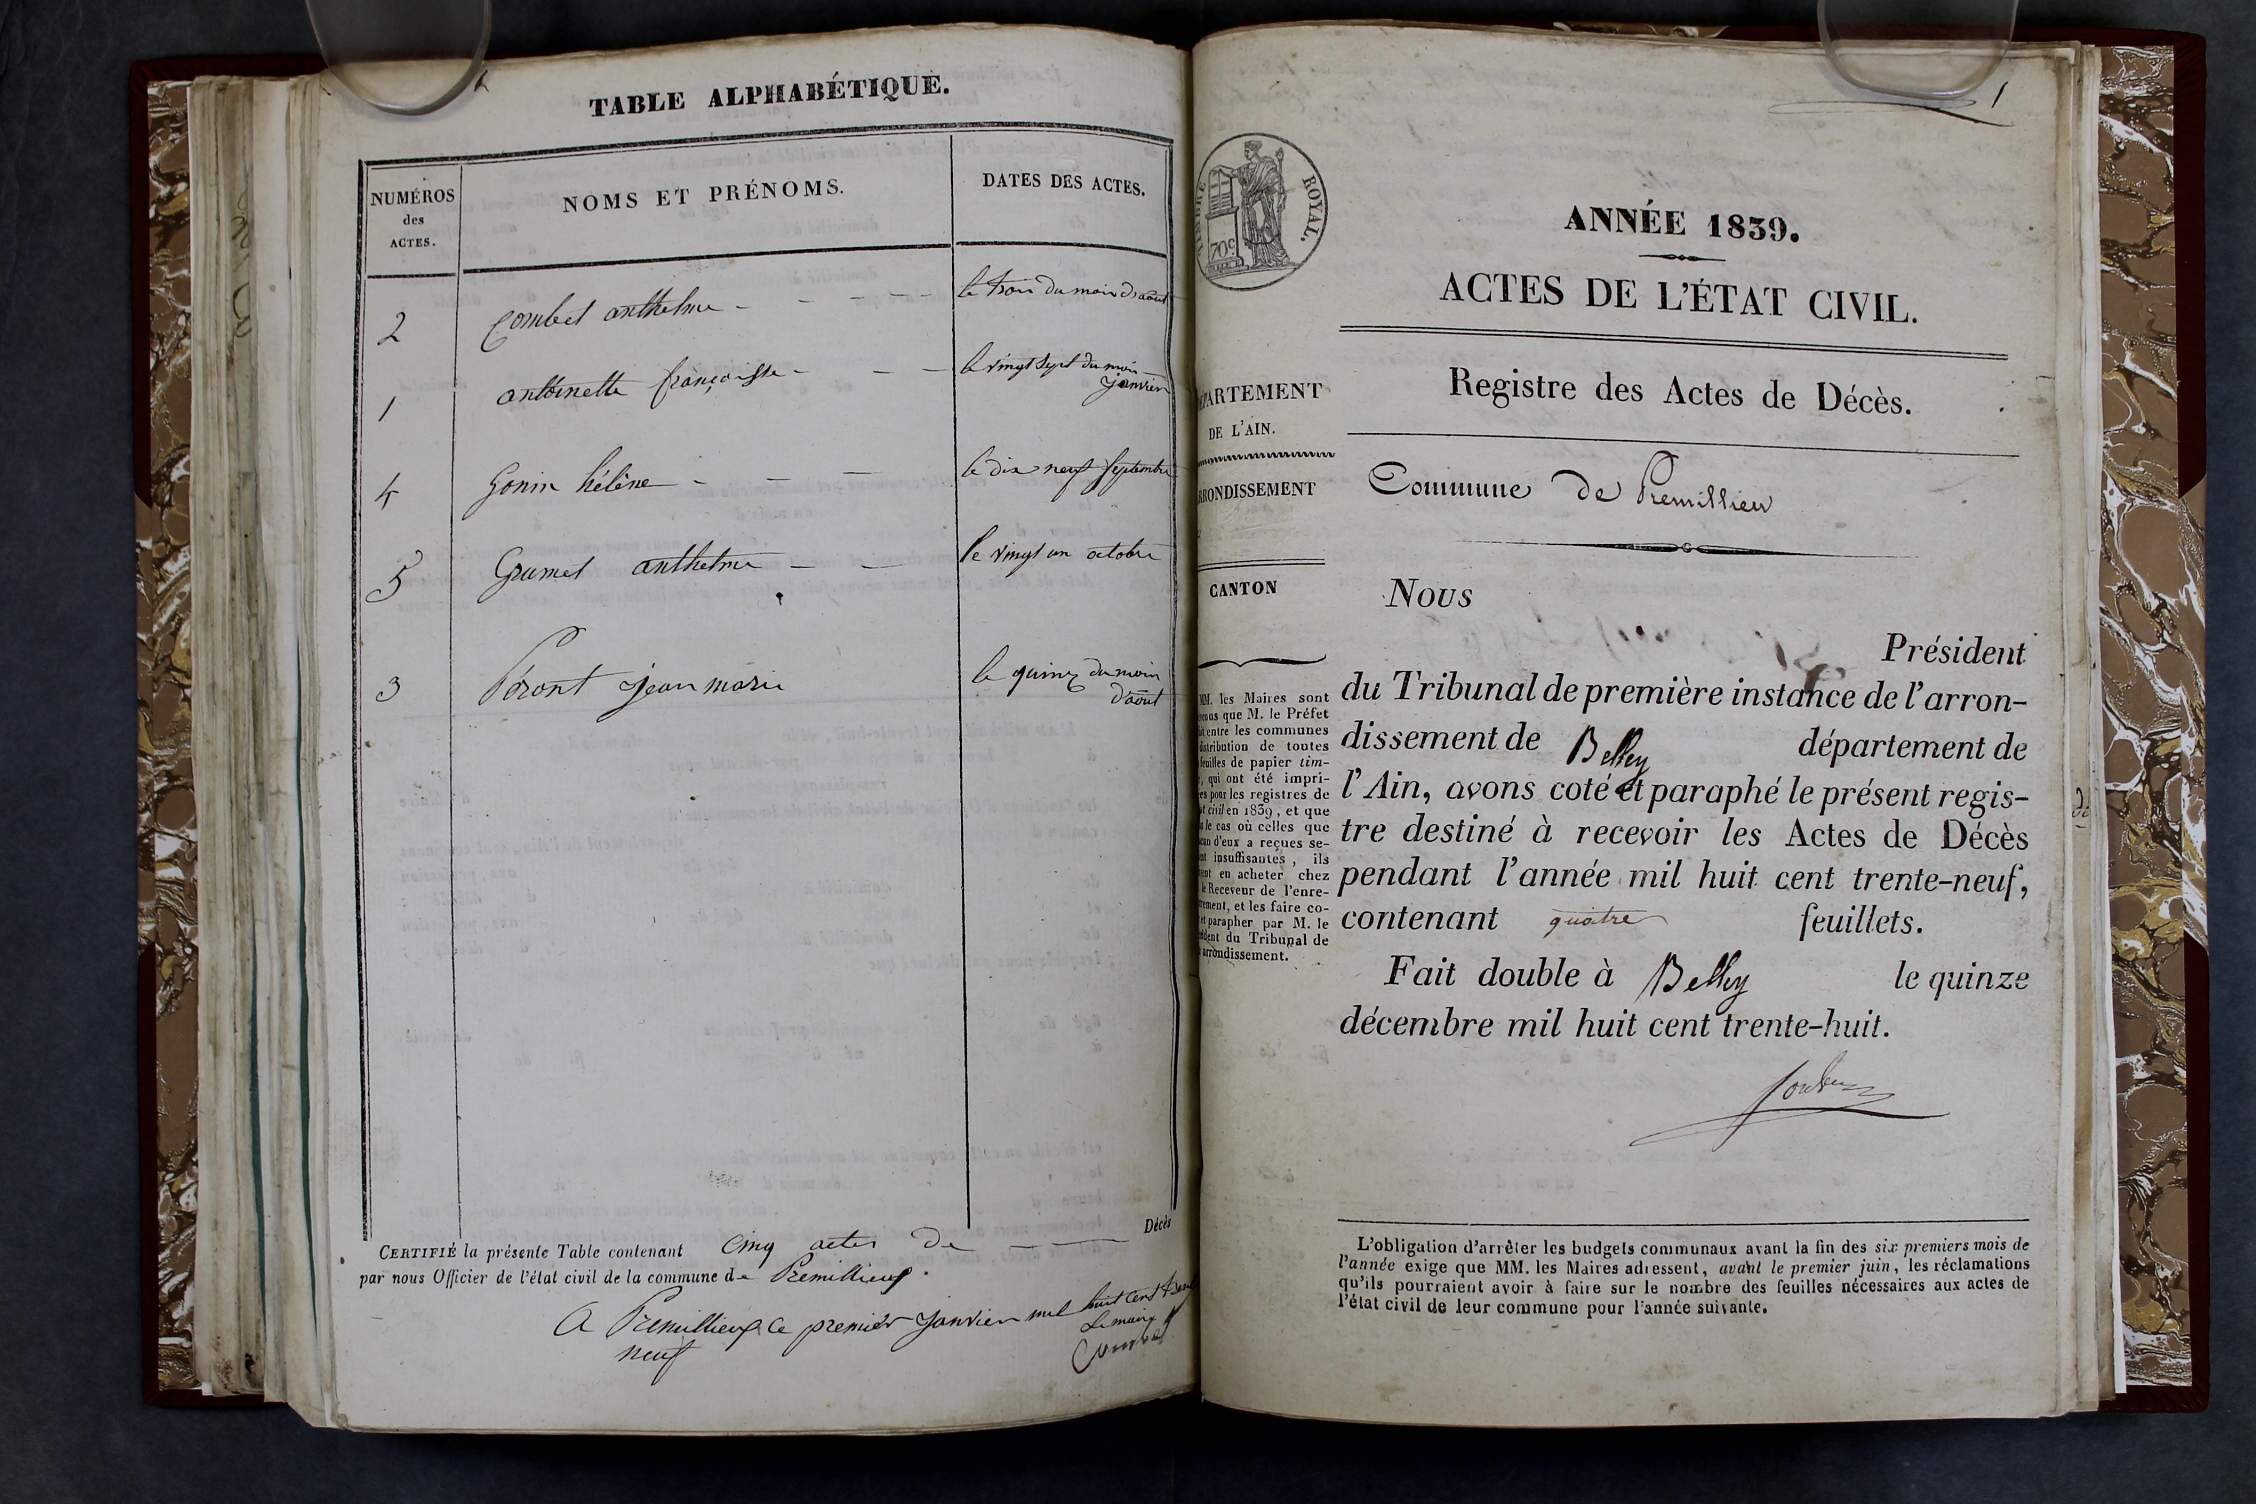 TABLE ALPHABÉTIQUE.
NUMÉROS
des
ACTES.
NOMS ET PRÉNOMS.
DATES DES ACTES.
2 Combet anthelme le trois du mois d'aout
1 antoinette françoise le vingt sept du mois
janvier
4 Gonin hélène le dix neuf septembre
5 Grumet anthelme le vingt un octobre
3 Péront jean marie le quinz du mois
d'aout
CERTIFIÉ la présente Table contenant cinq actes de Décès
par nous Officier de l'état civil de la commune de Premillieux.
A Premillieux ce premier janvier mil huit cent
neuf
Le maire
1
TIMBRE ROYAL.
70c
ANNÉE 1839.
ACTES DE L'ÉTAT CIVIL.
Registre des Actes de Décès.
Commune de Premillieu
PARTEMENT
DE L'AIN.
RONDISSEMENT
CANTON
MM. les Maires sont
nus que M. le Préfet
it entre les communes
istribution de toutes
feuilles de papier tim-
, qui ont été impri-
es pour les registres de
at civil en 1839, et que
s le cas où celles que
cun d'eux a reçues se-
nt insuffisantes, ils
vent en acheter chez
le Receveur de l'enre-
rement, et les faire co-
et parapher par M. le
ident du Tribunal de
arrondissement.
Nous
Président
du Tribunal de première instance de l'arron-
dissement de Belley département de
l'Ain, avons coté et paraphé le présent regis-
tre destiné à recevoir les Actes de Décès
pendant l'année mil huit cent trente-neuf,
contenant quatre feuillets.
Fait double à Belley le quinze
décembre mil huit cent trente-huit.
L'obligation d'arrêter les budgets communaux avant la fin des six premiers mois de
l'année exige que MM. les Maires adressent, avant le premier juin, les réclamations
qu'ils pourraient avoir à faire sur le nombre des feuilles nécessaires aux actes de
l'état civil de leur commune pour l'année suivante.